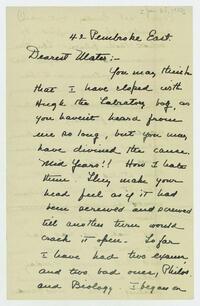 42 Pembroke East.
Dearest Mater:-
You may think
that I have eloped with
Hugh the Labratory boy, as
you havent heard from
me so long, but you may
have divined the cause.
Mid Years!! How I hate
them. They make your
head feel as if it had
been screwed and screwed
till another turn would
crack it open. So far
I have had two exams,
and two bad ones, Philos
and Biology. I began on